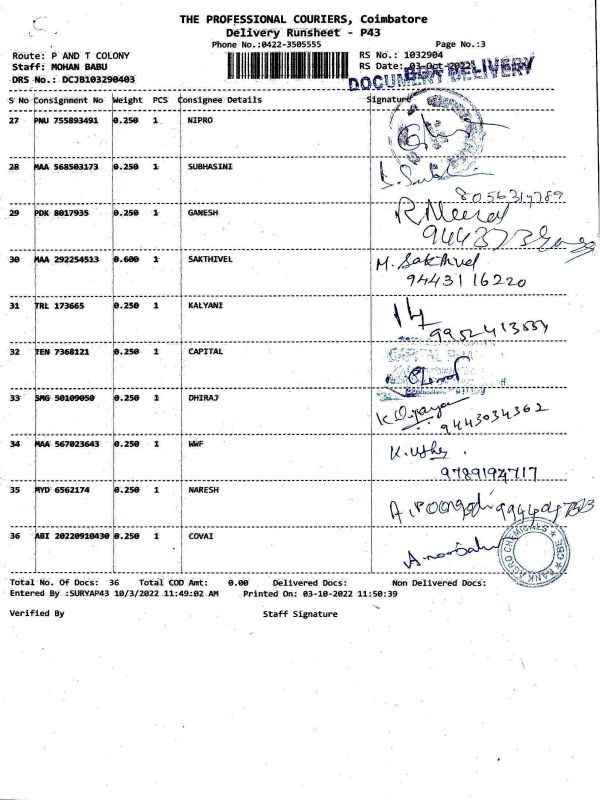 THE PROFESSIONAL COURIERS, Coimbatore
Delivery Runsheet - P43
Phone No.:0422-3505555 Page No.:3
Route: P AND T COLONY RS No.: 1032904
Staff: MOHAN BABU RS Date: 03-Oct-2022
DRS No.: DCJB103290403 DOCUMENT DELIVERY
S No Consignment No Weight PCS Consignee Details Signature
27 PNU 755893491 0.250 1 NIPRO
28 MAA 568503173 0.250 1 SUBHASINI
8056317789
29 PDK 8017935 0.250 1 GANESH
30 MAA 292254513 0.600 1 SAKTHIVEL M. Sakthivel
9443116220
31 TRL 173665 0.250 1 KALYANI
32 TEN 7368121 0.250 1 CAPITAL
33 SMG 50109050 0.250 1 DHIRAJ
9443034362
34 MAA 567023643 0.250 1 WWF K. Usha
9789194717
35 MYD 6562174 0.250 1 NARESH
36 ABI 20220910430 0.250 1 COVAI
Total No. Of Docs: 36 Total COD Amt: 0.00 Delivered Docs: Non Delivered Docs:
Entered By :SURYAP43 10/3/2022 11:49:02 AM Printed On: 03-10-2022 11:50:39
Verified By Staff Signature